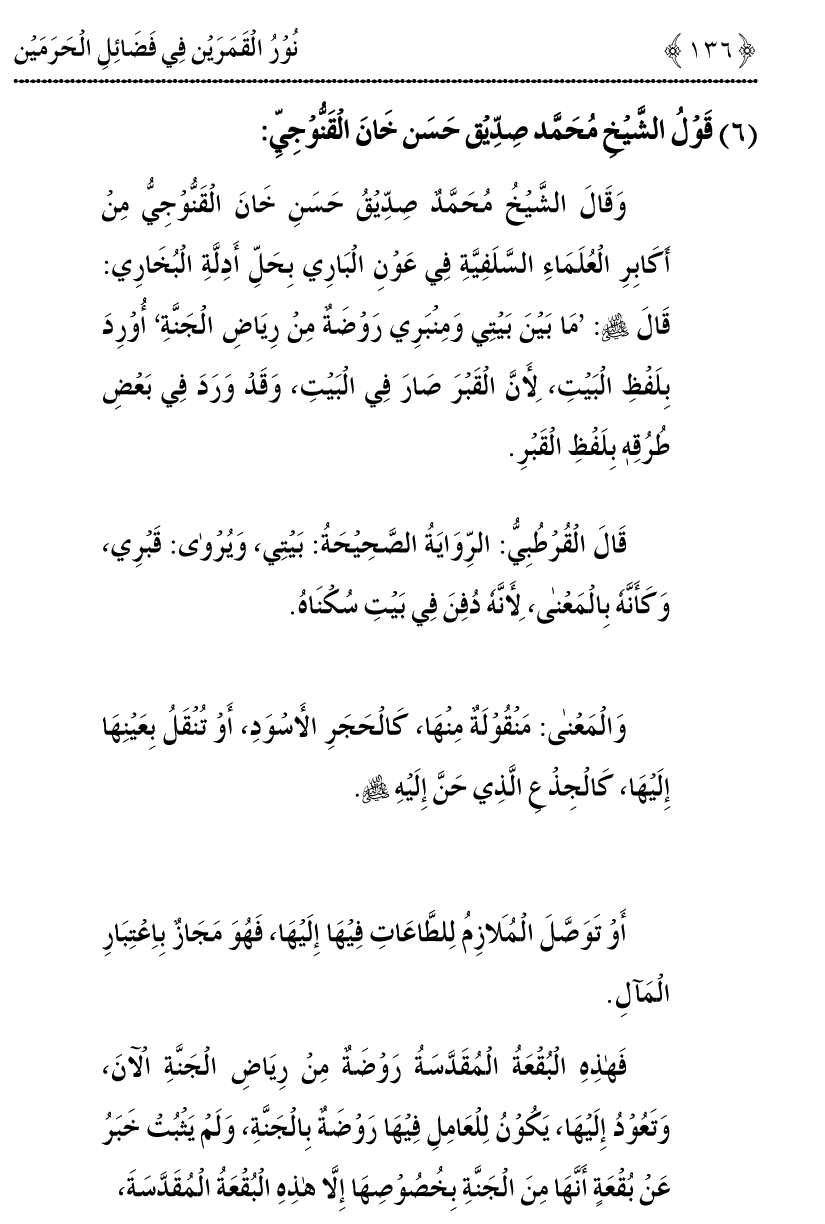 ﴿١٣٦﴾ نُوْرُ الْقَمَرَيْن فِي فَضَائِلِ الْحَرَمَيْن
(٦) قَوْلُ الشَّيْخِ مُحَمَّد صِدِّيْق حَسَن خَانَ الْقَنُّوْجِيِّ:
وَقَالَ الشَّيْخُ مُحَمَّدٌ صِدِّيْقُ حَسَنِ خَانَ الْقَنُّوْجِيُّ مِنْ
أَكَابِرِ الْعُلَمَاءِ السَّلَفِيَّةِ فِي عَوْنِ الْبَارِي بِحَلِّ أَدِلَّةِ الْبُخَارِي:
قَالَ ﷺ: ’مَا بَيْنَ بَيْتِي وَمِنْبَرِي رَوْضَةٌ مِنْ رِيَاضِ الْجَنَّةِ‘ أُوْرِدَ
بِلَفْظِ الْبَيْتِ، لِأَنَّ الْقَبْرَ صَارَ فِي الْبَيْتِ، وَقَدْ وَرَدَ فِي بَعْضِ
طُرُقِهٖ بِلَفْظِ الْقَبْرِ.
قَالَ الْقُرْطُبِيُّ: الرِّوَايَةُ الصَّحِيْحَةُ: بَيْتِي، وَيُرْوٰى: قَبْرِي،
وَكَأَنَّهٗ بِالْمَعْنٰى، لِأَنَّهٗ دُفِنَ فِي بَيْتِ سُكْنَاهُ.
وَالْمَعْنٰى: مَنْقُوْلَةٌ مِنْهَا، كَالْحَجَرِ الْاَسْوَدِ، أَوْ تُنْقَلُ بِعَيْنِهَا
إِلَيْهَا، كَالْجِذْعِ الَّذِي حَنَّ إِلَيْهِ ﷺ.
أَوْ تَوَصَّلَ الْمُلَازِمُ لِلطَّاعَاتِ فِيْهَا إِلَيْهَا، فَهُوَ مَجَازٌ بِاِعْتِبَارِ
الْمَآلِ.
فَهٰذِهِ الْبُقْعَةُ الْمُقَدَّسَةُ رَوْضَةٌ مِنْ رِيَاضِ الْجَنَّةِ الْآنَ،
وَتَعُوْدُ إِلَيْهَا، يَكُوْنُ لِلْعَامِلِ فِيْهَا رَوْضَةٌ بِالْجَنَّةِ، وَلَمْ يَثْبُتْ خَبَرُ
عَنْ بُقْعَةٍ أَنَّهَا مِنَ الْجَنَّةِ بِخُصُوْصِهَا إِلَّا هٰذِهِ الْبُقْعَةُ الْمُقَدَّسَةَ،